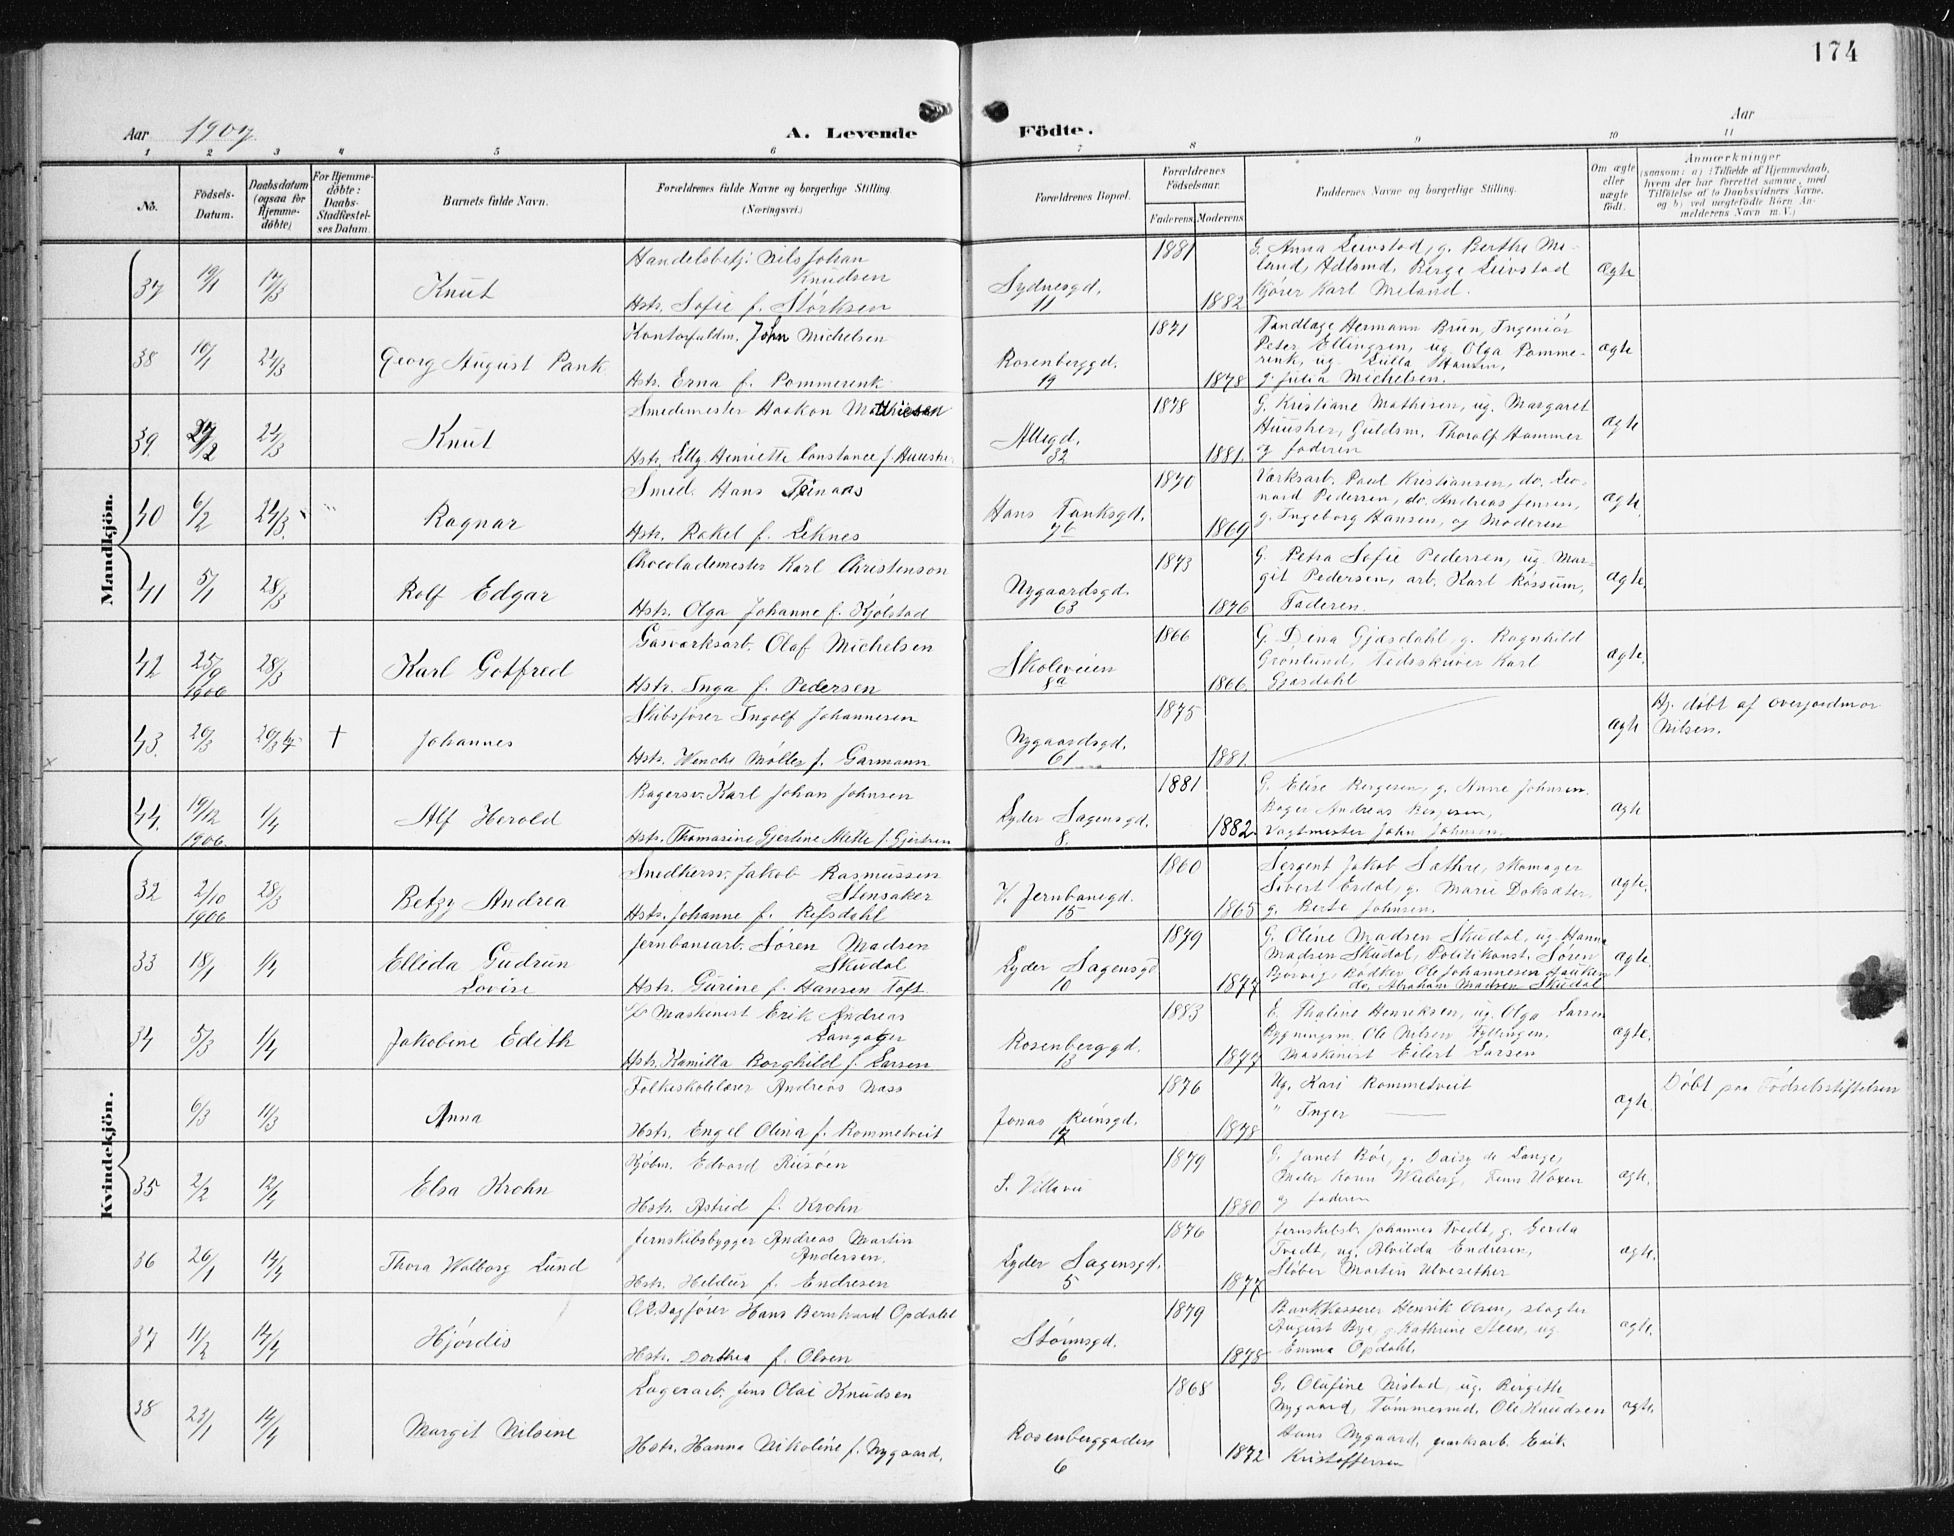 174
Aar 1907.
A. Levende Födte.
Aar
1 2 3 4 5 6 7 8 9 10 11
No.
Födsels-Datum.
Daabsdatum (ogsaa for Hjemme-döbte)
For Hjemme-döbte: Daabs-Stadfæstel-ses Datum.
Barnets fulde Navn.
Forældrenes fulde Navne og borgerlige Stilling. (Næringsvei.)
Forældrenes Bopæl.
Forældrenes Födselsaar.
Faderens Moderens
Faddernes Navne og borgerlige Stilling.
Om ægte eller uægte födt.
Anmærkninger
(saasom: a) i Tilfælde af Hjemmedaab, hvem der har forrettet samme, med Tilföielse af to Daabsvidners Navne. og b) ved uægtefödte Börn An-melderens Navn m. V.)
Mandkjön.
37 19/1 17/3 Knut
Handelsbetj. Nils Johan Knudsen
Hstr. Sofie f. Størksen
Sydnesgd. 11
1881 1882
G. Anna Leivstad, g. Berthe Me-
land, Adlsmd. Berge Leivstad
Kjører Karl Meland.
ægte
38 10/1 24/3 Georg August Pank
Kontorfuldm. John Michelsen
Hstr. Erna f. Pommerenk
Rosenberggd. 19
1871 1878
Tandlæge Hermann Brun, Ingeniør
Peter Ellingsen, ug Olga Pomme-
renk, ug. Lulla Hansen,
g. Julia Michelsen.
ægte
39. 24/3 Knut
Smedemester Haakon Mathiesen
Hstr. Lilly Henriette Constance f.
Allegd. 32
1878 1881.
G. Kristiane Mathisen, ug. Margaret
Guldsm. Thorolf Hammer
og faderen
ægte
40 6/2 24/3. Ragnar
Smed. Hans
Hstr. Rakel f. Leknes
Hans Tanksgd. 7b
1870 1869
Værksarb. Paul Kristiansen, do. Leo-
nard Pedersen, do. Andreas Jensen,
g. Ingeborg Hansen, og Moderen
ægte.
41 5/1 28/3 Rolf Edgar
Chocolademester Karl Christenson
Hstr. Olga Johanne f. Kjølstad
Nygaardsgd. 63
1873 1876
G. Petra Sofie Pedersen, ug. Mar-
git Pedersen, arb. Karl Røssum,
Faderen.
ægte.
42 25/9 1906 28/3 Karl Gotfred
Gasværksarb. Olaf Michelsen
Hstr. Inga f. Pedersen
Skoleveien 8a
1866 1866.
G. Dina Gjasdahl, g. Ragnhild
Grønlund, Tidsskriver Karl
Gjasdahl
ægte.
43. 20/3 + Johannes
Skibsfører Ingolf Johannesen
Hstr. Wenche Møller f. Garmann
Nygaardsgd. 61
1875 1881
ægte
Hj. døbt af overjordmor
Nilsen.
44. 19/12 1906. 1/4 Alf Herold
Bagersv. Karl Johan Johnsen
Hstr. Thomasine Gjertine Mette f. Gjertsen
Lyder Sagensgd. 8.
1881 1882
G. Elise Bergesen, g. Anne Johnsen.
Bager Andreas Bergesen,
Vagtmester John Johnsen.
ægte
Kvindekjön.
32 2/10 1906 28/3 Betzy Andrea
Smedhersv. Jakob Rasmussen Stensaker
Hstr. Johanne f. Refsdahl
V. Jernbanegd. 15
1860 1865
Sergent Jakob Sæthre, skomager
Sivert Erdal, g. Marie Doksæter.
g. Berte Johnsen.
ægte.
33 18/1 1/4 Ellida Gudrun Lovise
Jernbanearb. Søren Madsen Skudal
Hstr. Gurine f. Hansen Toft
Lyder Sagensgd 10
1879 1877
G. Oline Madsen Skudal, ug. Hanna
Madsen Skudal, Politikonst. Søren
Bjorvig, Bødker Ole Johannesen
do. Abraham Madsen Skudal
ægte.
34 5/3 1/4 Jakobine Edith
Maskinist Erik Andreas Langager
Hstr. Kamilla Borghild f. Larsen
Rosenberggd. 13
1883 1877
E. Thaline Henriksen, ug. Olga Larsen
Bygningsm. Ole Nilsen Fyllingen,
Maskinist Eilert Larsen
ægte.
6/3 11/3 Anna
Folkeskolelærer Andreas Næss
Hstr. Engel Olina f. Rommetveit
Jonas Reinsgd. 17
1876 1878
Ug. Kari Rommetveit
" Inger ——
ægte.
Døbt paa Fødselsstiftelsen
35 2/2 12/4 Elsa Krohn
Kjøbm. Edvard Riisøen
Hstr. Astrid f. Krohn
S. Villavei
1879 1880
G. Janet Bøe, g. Daisy de Lange,
Maler Konn Wiberg,
og faderen
ægte.
36 26/1 14/4 Thora Walborg Lund
Jernskibsbygger Andreas Martin Andersen.
Hstr. Heldur f. Endresen
Lyder Sagensgd. 5
1876 1877
Jernskibsb. Johannes Tvedt, g. Gerda
Tvedt, ug. Alvilda Endresen,
Støber Martin Ulvesether
ægte.
37 11/2 14/4 Hjørdis
O.R.sagfører Hans Bernhard Opdahl
Hstr. Dorthea f. Olsen
Størmsgd. 6
1879 1878
Bankkasserer Henrik Olsen, slagter
August Bye, g. Kathrine Steen, ug
Emma Opdahl.
ægte.
38 23/1 14/4 Margit Nilsine
Lagerarb. Jens Olai Knudsen
Hstr. Hanna Nikoline f. Nygaard.
Rosenberggaden 6
1868 1872
G. Olufine Nistad, ug. Birgitte
Nygaard, Tømmermd. Ole Knudsen
Hans Nygaard, Erik
Kristoffersen
ægte.